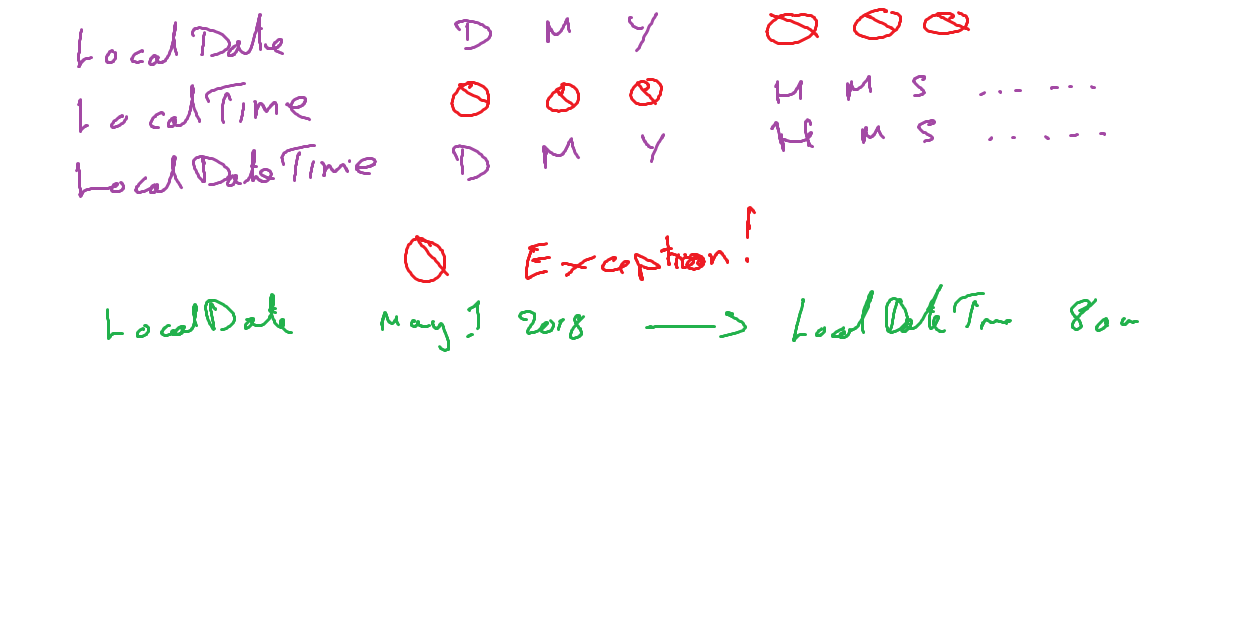 LocalDate D M Y
LocalTime H M S ... ...
LocalDateTime D M Y H M S ......
Exception!
LocalDate May 1 2018 LocalDateTime 8am